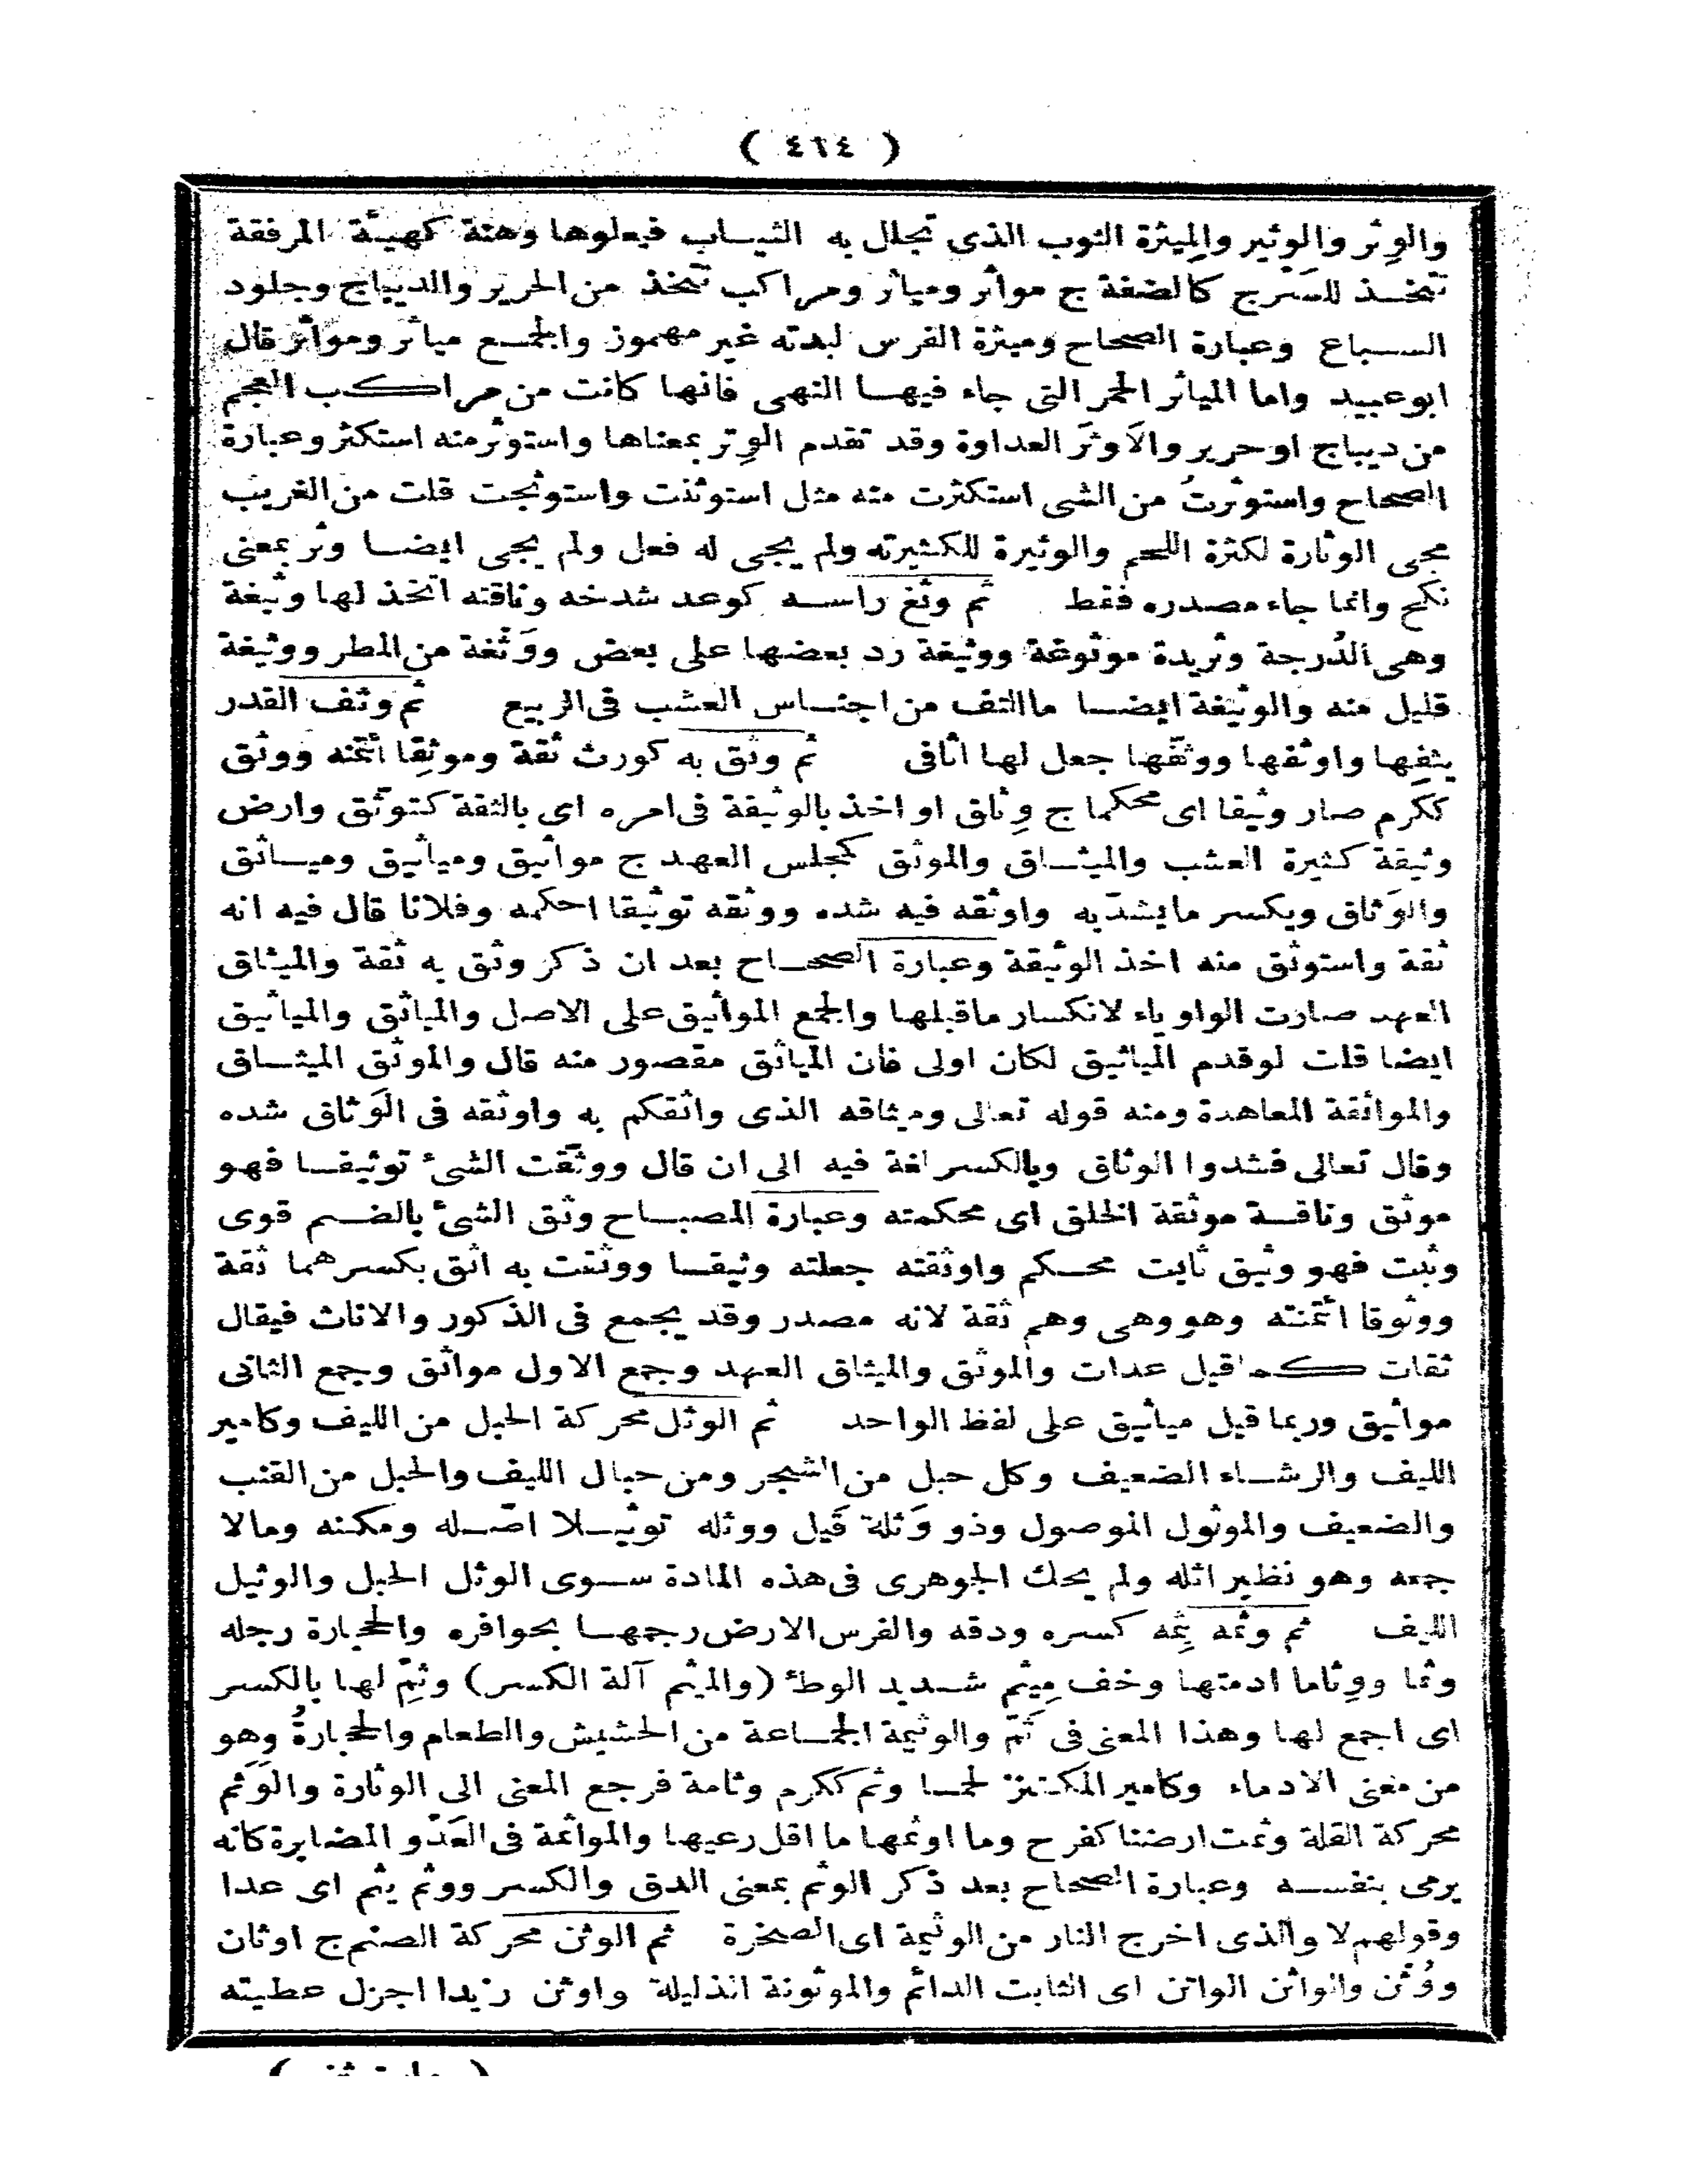 ( ٤٦٤ )
والوِثر والوثير والمِيثرة الثوب الذى تجلل به الثياب فيعلوها وهنة كهيئة المرفقة
تتخذ للسَرج كالصفة ج مواثر ومياثر ومراكب تتخذ من الحرير والديباج وجلود
السباع وعبارة الصحاح وميثرة الفرس لبدته غير مهموز والجمع مياثر ومواثر قال
ابوعبيد واما المياثر الحمر التى جاء فيها النهى فانها كانت من مراكب العجم
من ديباج او حرير والاَوثَر العداوة وقد تقدم الوِتر بمعناها واستوثر منه استكثر وعبارة
الصحاح واستوثرتُ من الشى استكثرت منه مثل استوثنت واستوثجت قلت من الغريب
مجى الوثارة لكثرة اللحم والوثيرة للكثيرته ولم يجى له فعل ولم يجى ايضا وثر بمعنى
نكح وانما جاء مصدره فقط ثم وثغ راسه كوعد شدخه وناقته اتخذ لها وثيغة
وهى الدُرجة وثريدة موثوغة ووثيغة رد بعضها على بعض ووَثْغة من المطر ووثيغة
قليل منه والوثيغة ايضا ما التف من اجناس العشب فى الربيع ثم وثف القدر
يثفها واوثفها ووثّفها جعل لها اثافى ثم وثق به كورث ثقة وموثِقا ائتمنه ووثق
ككرم صار وثيقا اى محكما ج وِثاق او اخذ بالوثيقة فى امره اى بالثقة كتوثّق وارض
وثيقة كثيرة العشب والميثاق والموثق كمجلس العهد ج مواثيق ومياثيق ومياثق
والوَثاق ويكسر ما يشدّ به واوثقه فيه شده ووثقه توثيقا احكمه وفلانا قال فيه انه
ثقة واستوثق منه اخذ الوثيقة وعبارة الصحاح بعد ان ذكر وثق به ثقة والميثاق
العهد صارت الواو ياء لانكسار ماقبلها والجمع المواثيق على الاصل والمياثق والمياثيق
ايضا قلت لوقدم المياثيق لكان اولى فان المياثق مقصور منه قال والموثق الميثاق
والمواثقة المعاهدة ومنه قوله تعالى وميثاقه الذى واثقكم به واوثقه فى الوَثاق شده
وقال تعالى فشدوا الوثاق وبالكسر لغة فيه الى ان قال ووثّقت الشئ توثيقا فهو
موثق وناقة موثقة الخلق اى محكمته وعبارة المصباح وثق الشئ بالضم قوى
وثبت فهو وثيق ثابت محكم واوثقته جعلته وثيقا ووثقت به اثق بكسرهما ثقة
ووثوقا ائتمنته وهو وهى وهم ثقة لانه مصدر وقد يجمع فى الذكور والاناث فيقال
ثقات كما قيل عدات والموثق والميثاق العهد وجمع الاول مواثق وجمع الثانى
مواثيق وربما قيل مياثيق على لفظ الواحد ثم الوثل محركة الحبل من الليف وكامير
الليف والرشاء الضعيف وكل حبل من الشجر ومن حبال الليف والحبل من القنب
والضعيف والموثول الموصول وذو وَثلة قَيل ووثله توثيلا اصّله ومكنه ومالا
جمعه وهو نظير اثله ولم يحك الجوهرى فى هذه المادة سوى الوثل الحبل والوثيل
الليف ثم وثمه يثِمه كسره ودقه والفرس الارض رجمها بحوافره والحجارة رجله
وثما ووِثاما ادمتها وخف مِيثم شديد الوطئ (والميثم آلة الكسر) وثِمّ لها بالكسر
اى اجمع لها وهذا المعنى فى ثَمّ والوثيمة الجماعة من الحشيش والطعام والحجارةُ وهو
من معنى الادماء وكامير المكتنز لحما وثم ككرم وثامة فرجع المعنى الى الوثارة والوَثَم
محركة القلة وثمت ارضنا كفرح وما اوثمها ما اقل رعيها والمواثمة فى العَدْو المضابرة كانه
يرمى بنفسه وعبارة الصحاح بعد ذكر الوثم بمعنى الدق والكسر ووثم يثم اى عدا
وقولهم لا والذى اخرج النار من الوثيمة اى الصخرة ثم الوثن محركة الصنم ج اوثان
ووُثن والواثن الواتن اى الثابت الدائم والموثونة الذليلة واوثن زيدا اجزل عطيته